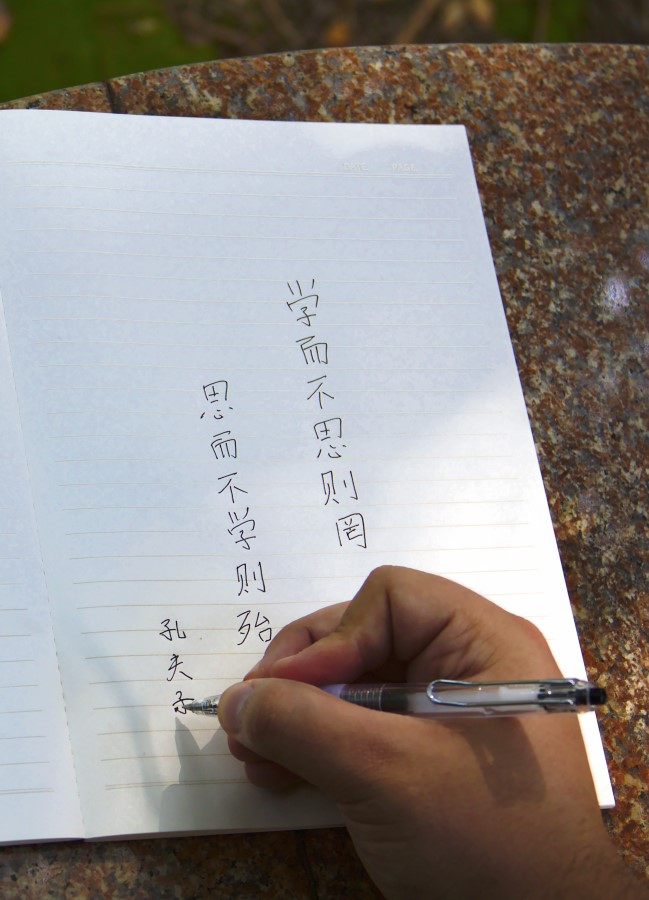 学而不思则罔
思而不学则殆
孔夫子
DATE PAGE